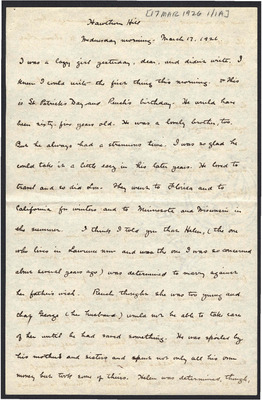 [17 MAR 1926 1/1A]
Hawthorn Hill
Wednesday morning. March 17, 1926.
I was a lazy girl yesterday, dear, and didn't write. I
knew I could write the first thing this morning. This
is St. Patrick's Day and Reuch's birthday. He would have
been sixty-five years old. He was a lovely brother, too.
But he always had a strenuous time. I was so glad he
could take it a little easy in his later years. He loved to
travel and so did Lou. They went to Florida and to
California for winters and to Minnesota and Wisconsin in
the summer. I think I told you that Helen, (the one
who lives in Lawrence now and was the one I was so concerned
about several years ago) was determined to marry against
her father's wish. thought she was too young and
that George (her husband) would not be able to take care
of her until he had saved something. He was spoiled by
his mother and sisters and spent not only all his own
money but took some of theirs. Helen was determined, though,